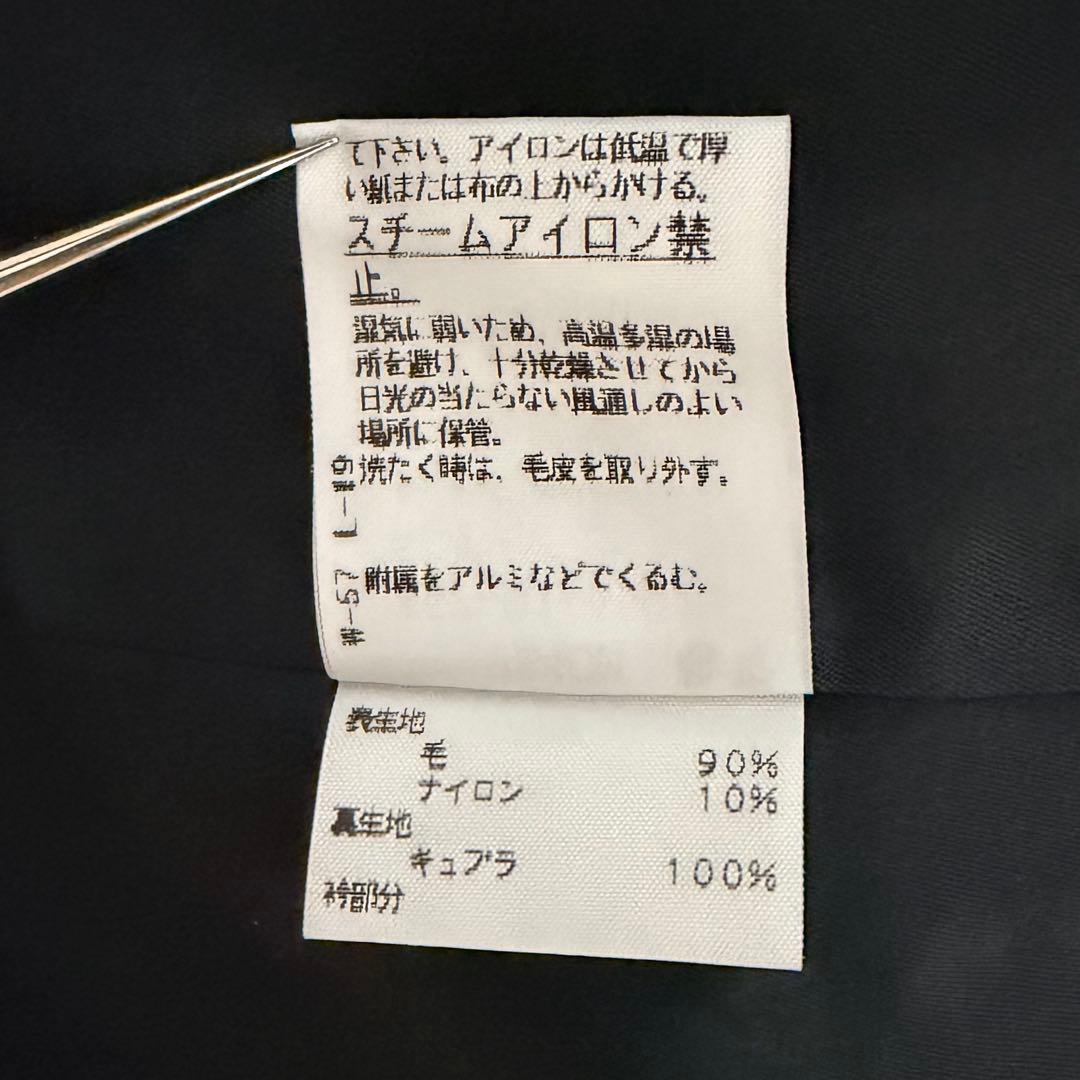 て下さい。アイロンは低温で厚
い紙または布の上からかける。
スチームアイロン禁
止。
湿気に弱いため、高温多湿の場
所を避け、十分乾燥させてから
日光の当たらない風通しのよい
場所に保管。
洗たく時は、毛皮を取り外す。
L-19
附属をアルミなどでくるむ。
W-57
表生地
毛 90%
ナイロン 10%
裏生地
キュプラ 100%
衿部分